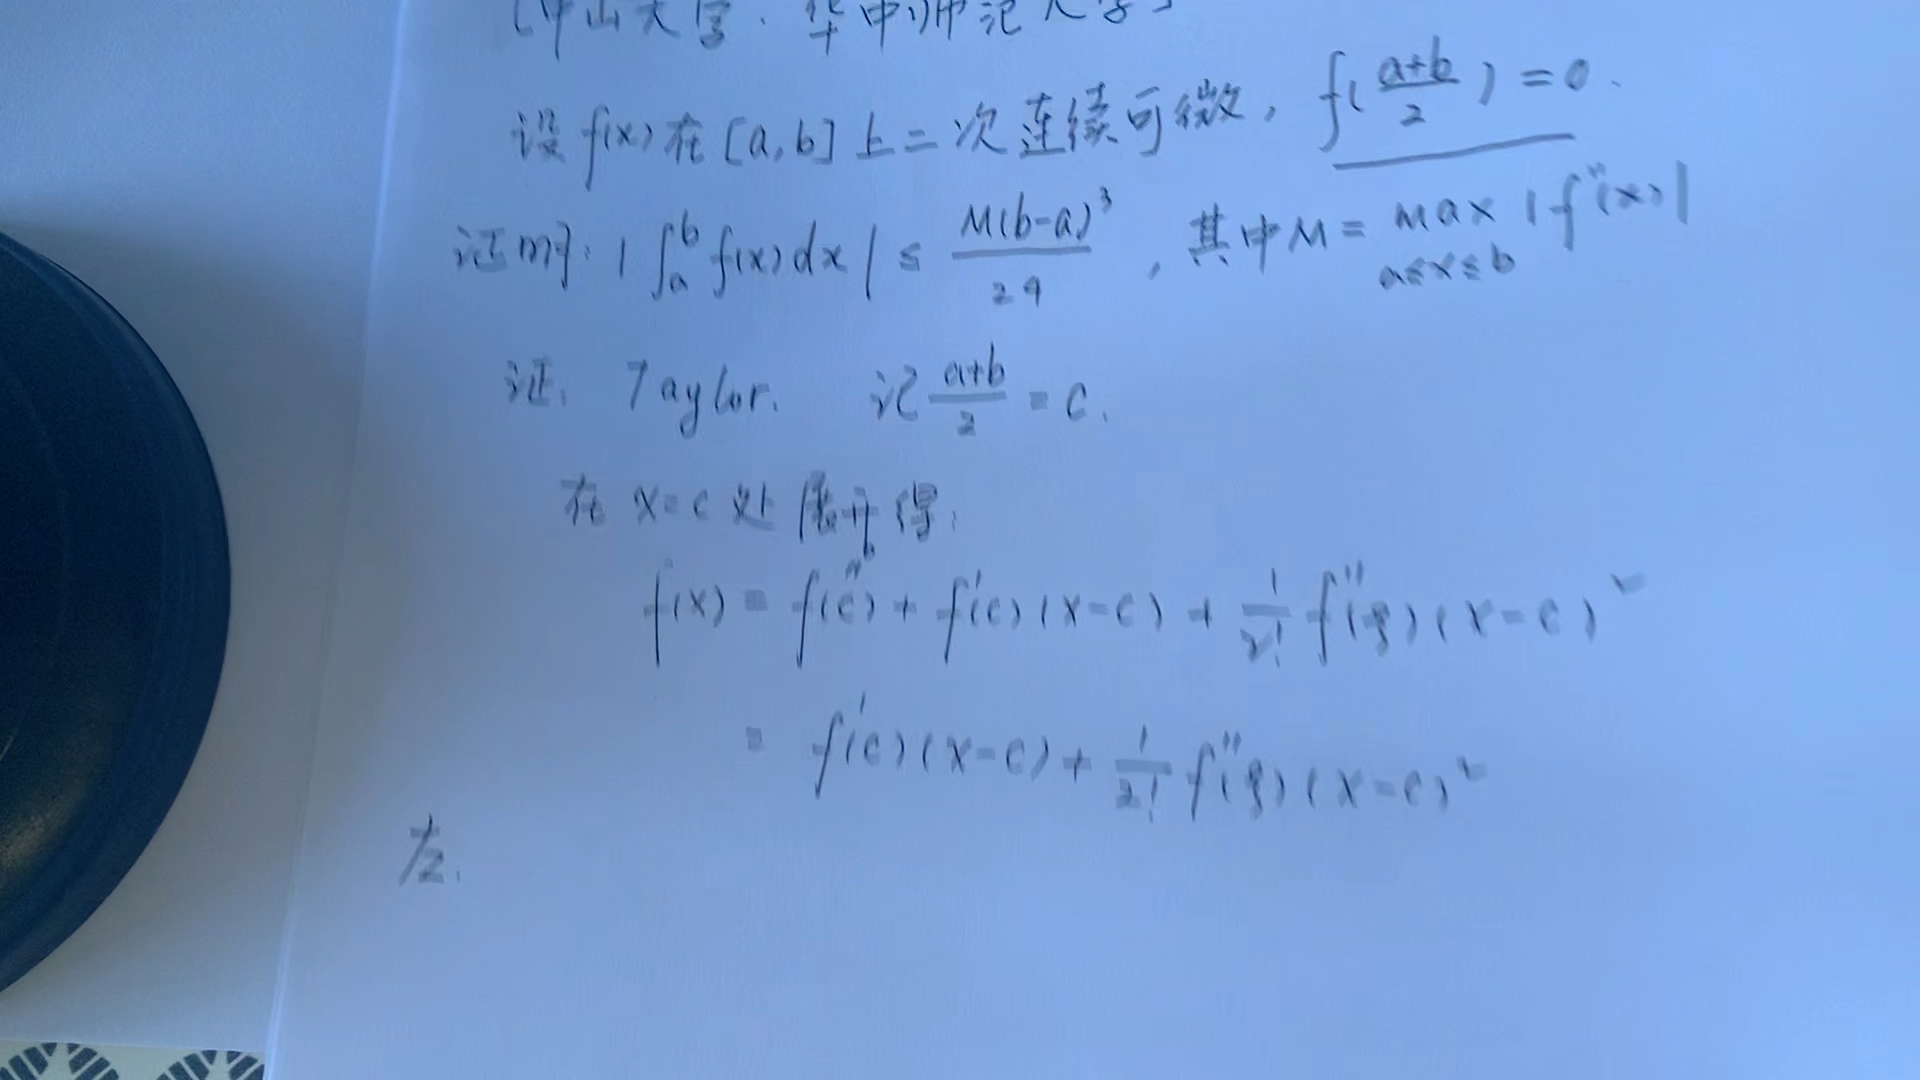 [中山大学、华中师范大学]
设 f(x) 在 [a,b] 上二次连续可微, f(\frac{a+b}{2}) = 0.
证明: | ∫_a^b f(x) dx | ≤ \frac{M(b-a)^3}{24}, 其中 M = max_{a≤x≤b} |f''(x)|
证. Taylor. 记 \frac{a+b}{2} = c.
在 x=c 处展开得:
f(x) = f(c) + f'(c)(x-c) + \frac{1}{2!} f''(ξ)(x-c)^2
= f'(c)(x-c) + \frac{1}{2!} f''(ξ)(x-c)^2
左.